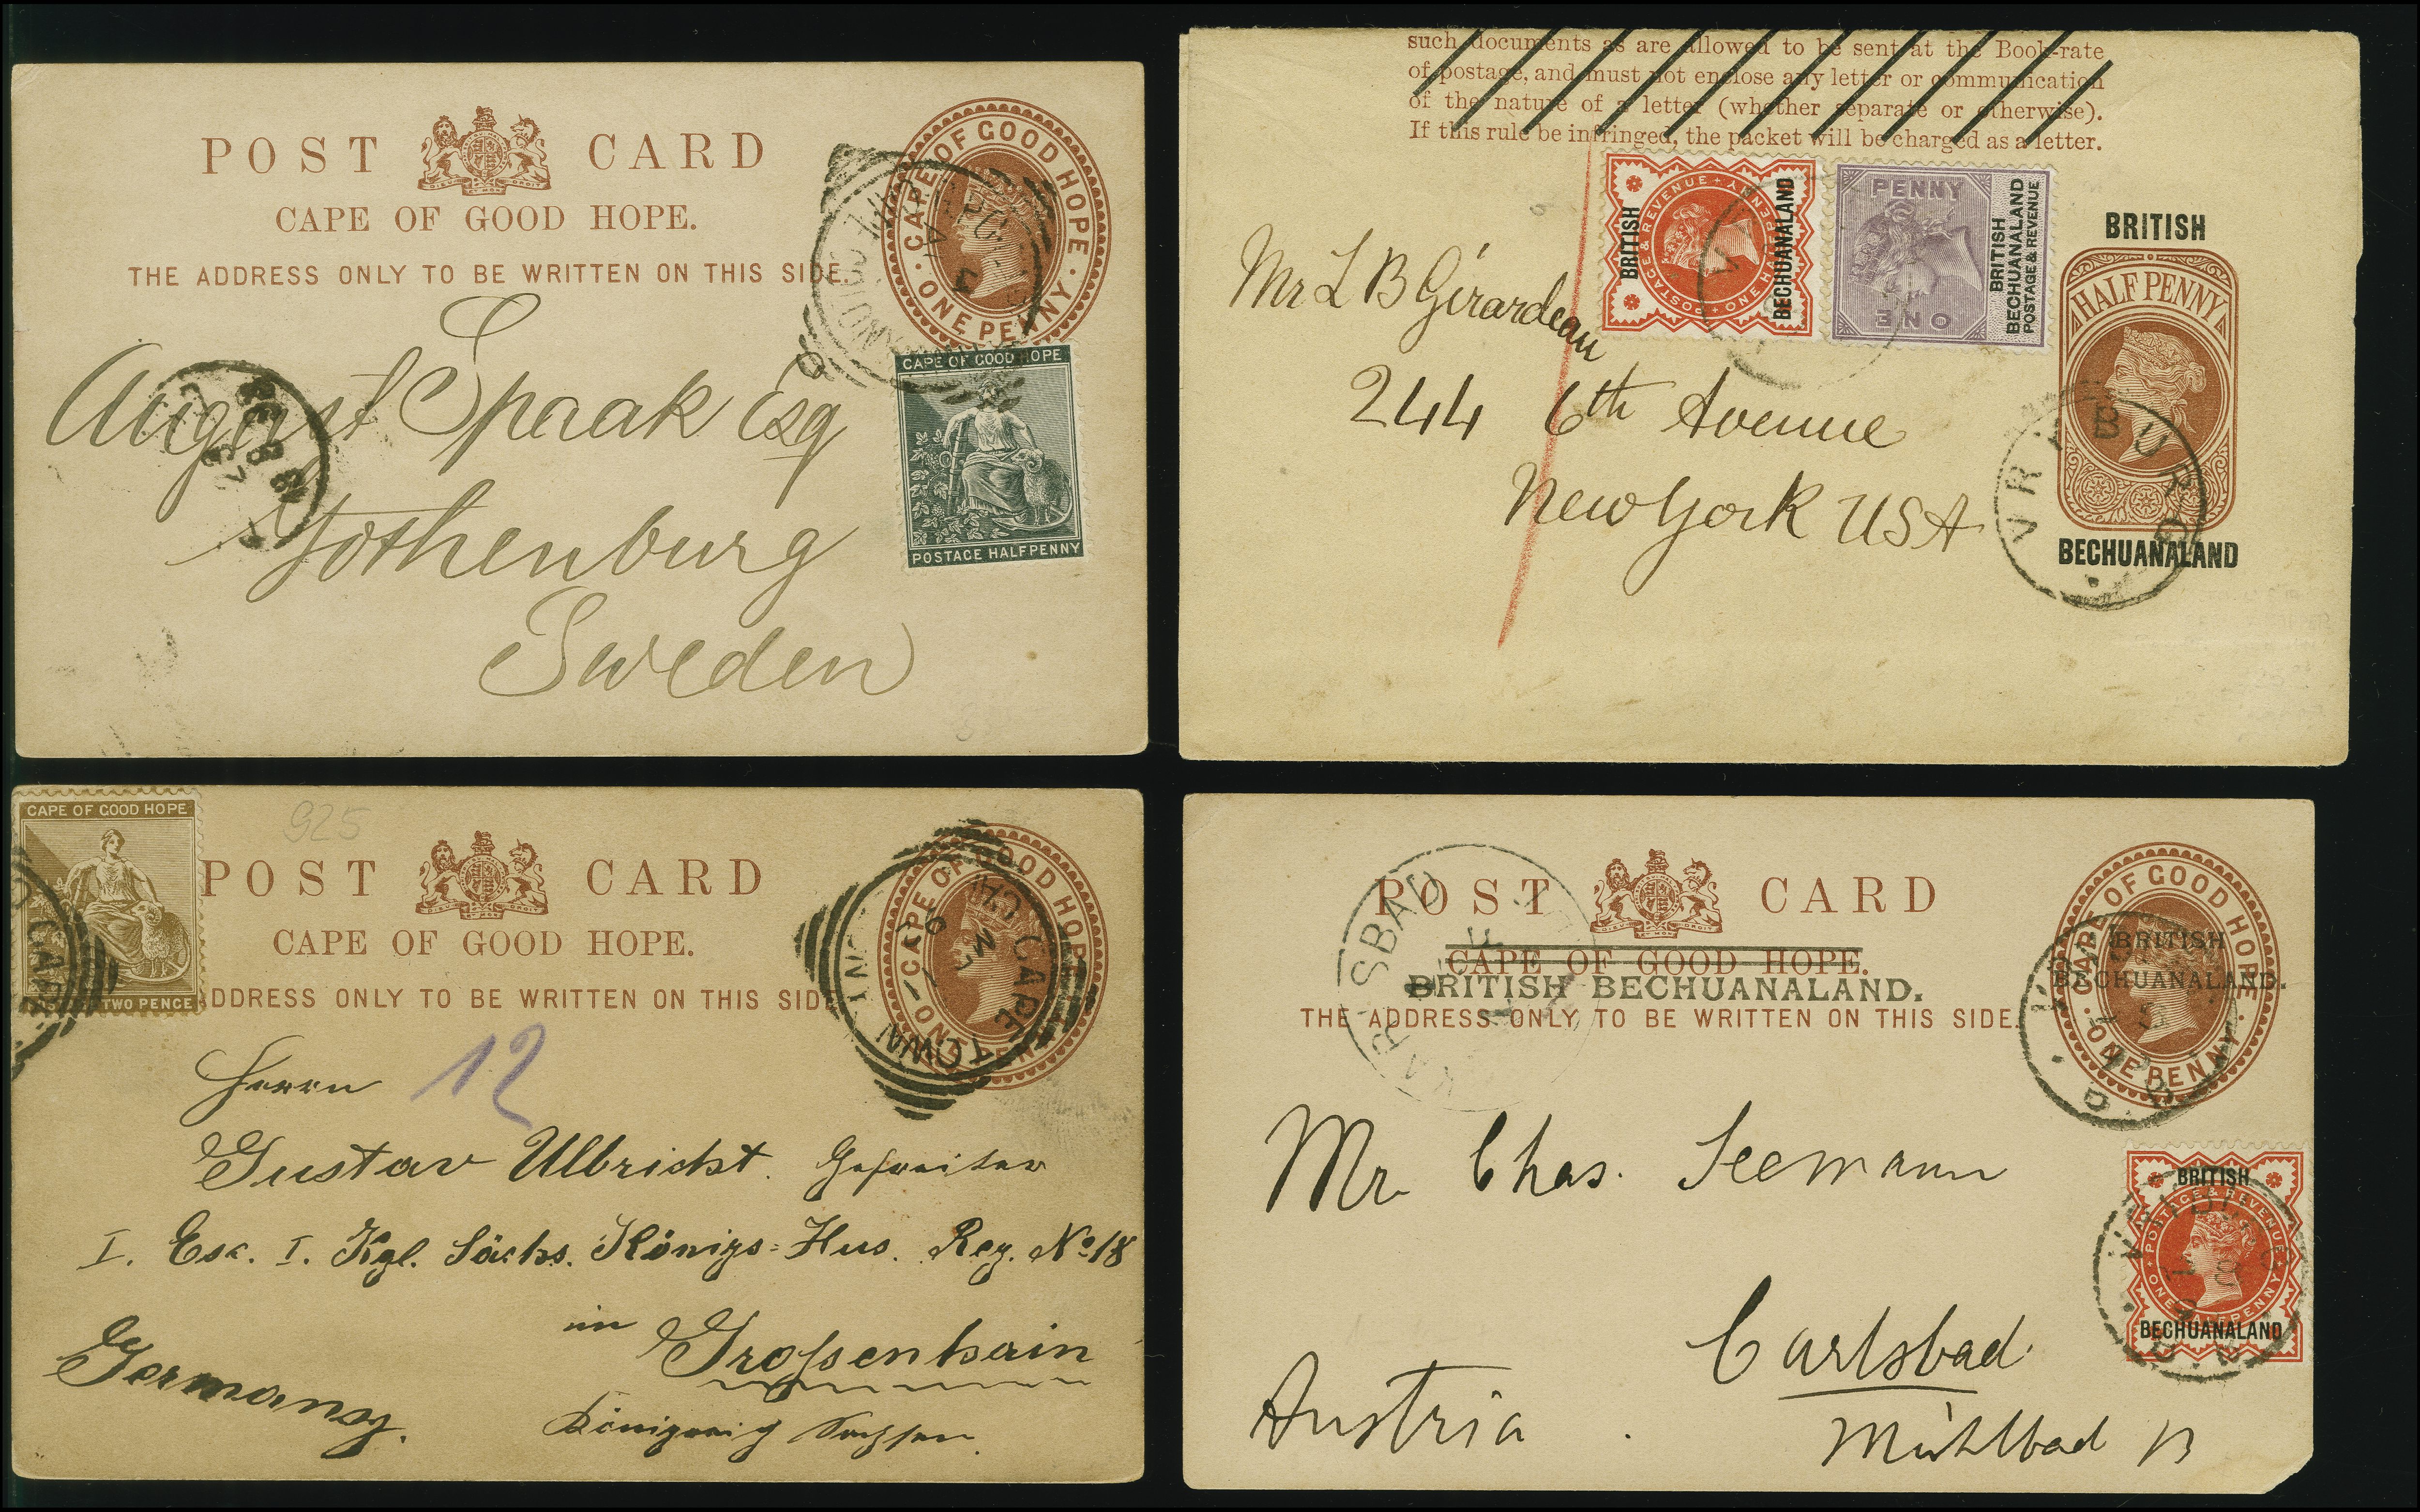 POST CARD
CAPE OF GOOD HOPE.
THE ADDRESS ONLY TO BE WRITTEN ON THIS SIDE.
CAPE OF GOOD HOPE
ONE PENNY
CAPE OF GOOD HOPE
POSTAGE HALFPENNY
August Spaak Esq
Gothenburg
Sweden
such documents as are allowed to be sent at the Book-rate
of postage, and must not enclose any letter or communication
of the nature of a letter (whether separate or otherwise).
If this rule be infringed, the packet will be charged as a letter.
BRITISH
BECHUANALAND
POSTAGE & REVENUE
ONE HALFPENNY
ONE PENNY
BRITISH
BECHUANALAND
POSTAGE & REVENUE
BRITISH
HALFPENNY
BECHUANALAND
VRYBURG
Mr L B Girardeau
244 6th Avenue
New York USA
CAPE OF GOOD HOPE
TWO PENCE
925
POST CARD
CAPE OF GOOD HOPE.
ADDRESS ONLY TO BE WRITTEN ON THIS SIDE
CAPE OF GOOD HOPE
ONE PENNY
CAPE TOWN
12
Herrn
Gustav Ulbricht. Gefreiter
I. Esc. I. Kgl. Sächs. Königs-Hus. Reg. No 18
in Grossenhain
Germany.
Königreich Sachsen.
POST CARD
CAPE OF GOOD HOPE.
BRITISH BECHUANALAND.
THE ADDRESS ONLY TO BE WRITTEN ON THIS SIDE.
CAPE OF GOOD HOPE
BRITISH
BECHUANALAND.
ONE PENNY
KARLSBAD
BRITISH
POSTAGE & REVENUE
ONE HALFPENNY
BECHUANALAND
Mr. Chas. Seemann
Carlsbad
Austria.
Mühlbad